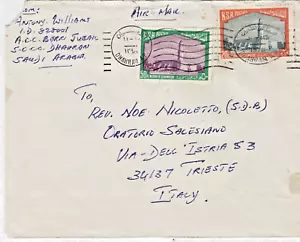 From:
Antony Williams
I.D. 323001
A.C.C. Berri Jubail
S.C.C.C Dhahran
Saudi Arabia
Air-Mail
To,
Rev. Noe. Nicoletto, (S.D.B)
Oratorio Salesiano
Via-Dell' Istria 53
34137 Trieste
Italy.